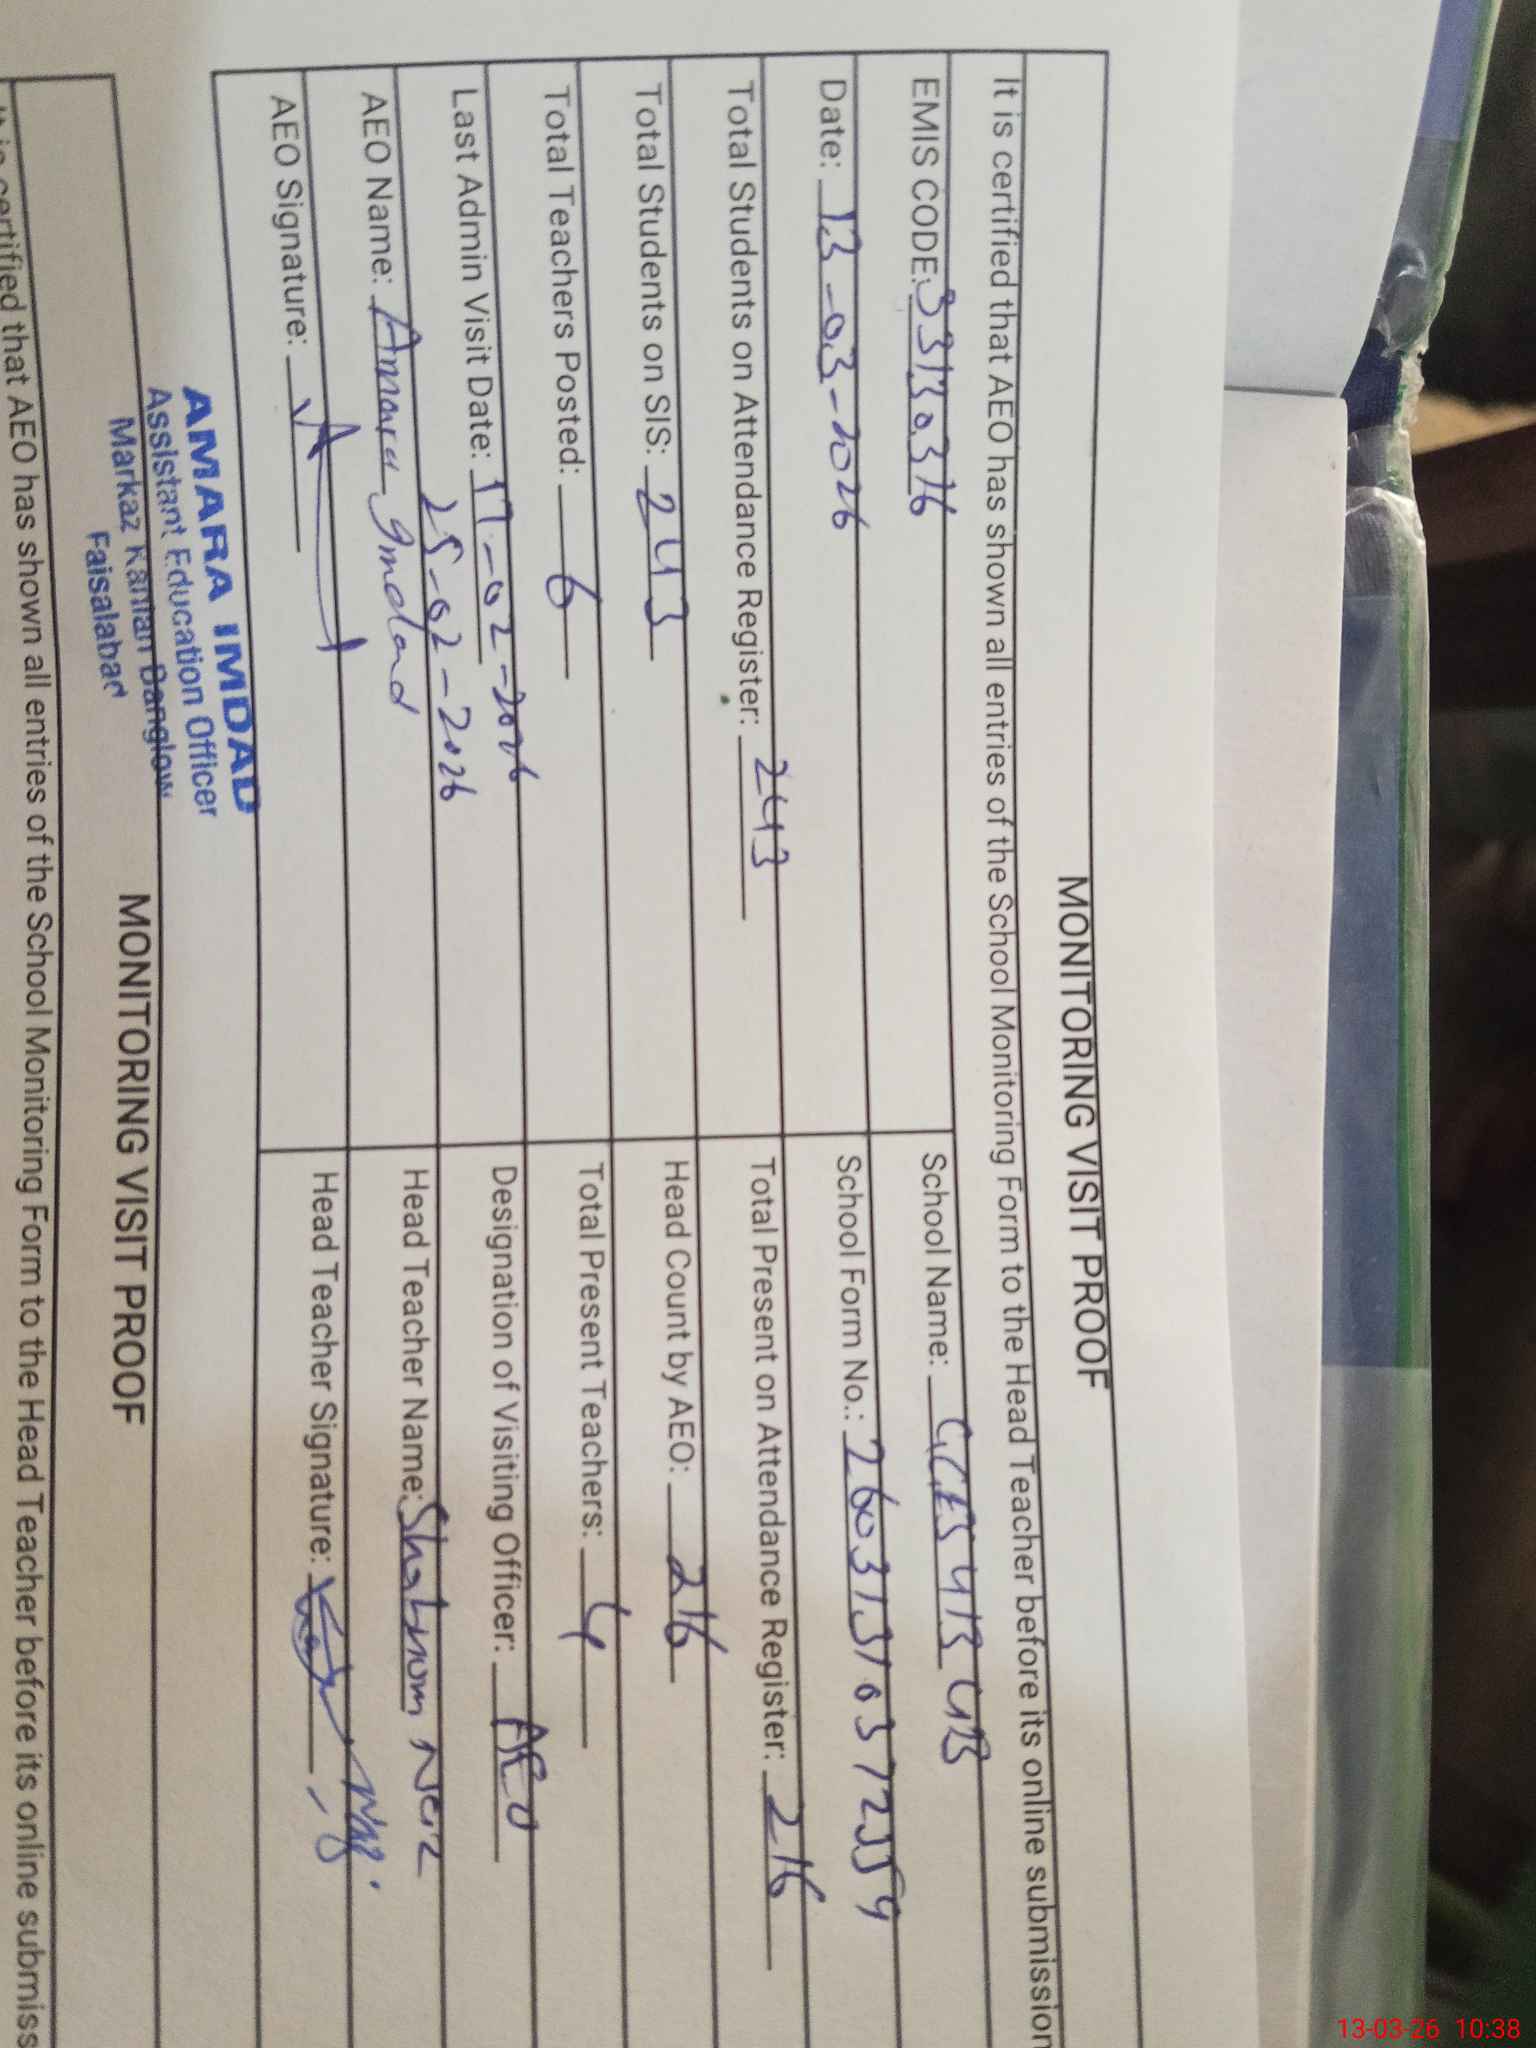 MONITORING VISIT PROOF
It is certified that AEO has shown all entries of the School Monitoring Form to the Head Teacher before its online submission
EMIS CODE: 33130376 School Name:
Date: 13-03-2026 School Form No.:
Total Students on Attendance Register: 243 Total Present on Attendance Register: 216
Total Students on SIS: 243 Head Count by AEO: 216
Total Teachers Posted: 6 Total Present Teachers: 4
Last Admin Visit Date: 17-02-2026 Designation of Visiting Officer: AEO
25-02-2026
AEO Name: Amara Imdad Head Teacher Name: Shabnom Naz
AEO Signature: Head Teacher Signature:
AMARA IMDAD
Assistant Education Officer
Markaz Kanian Banglow
Faisalabad
MONITORING VISIT PROOF
It is certified that AEO has shown all entries of the School Monitoring Form to the Head Teacher before its online submiss
13-03-26 10:38